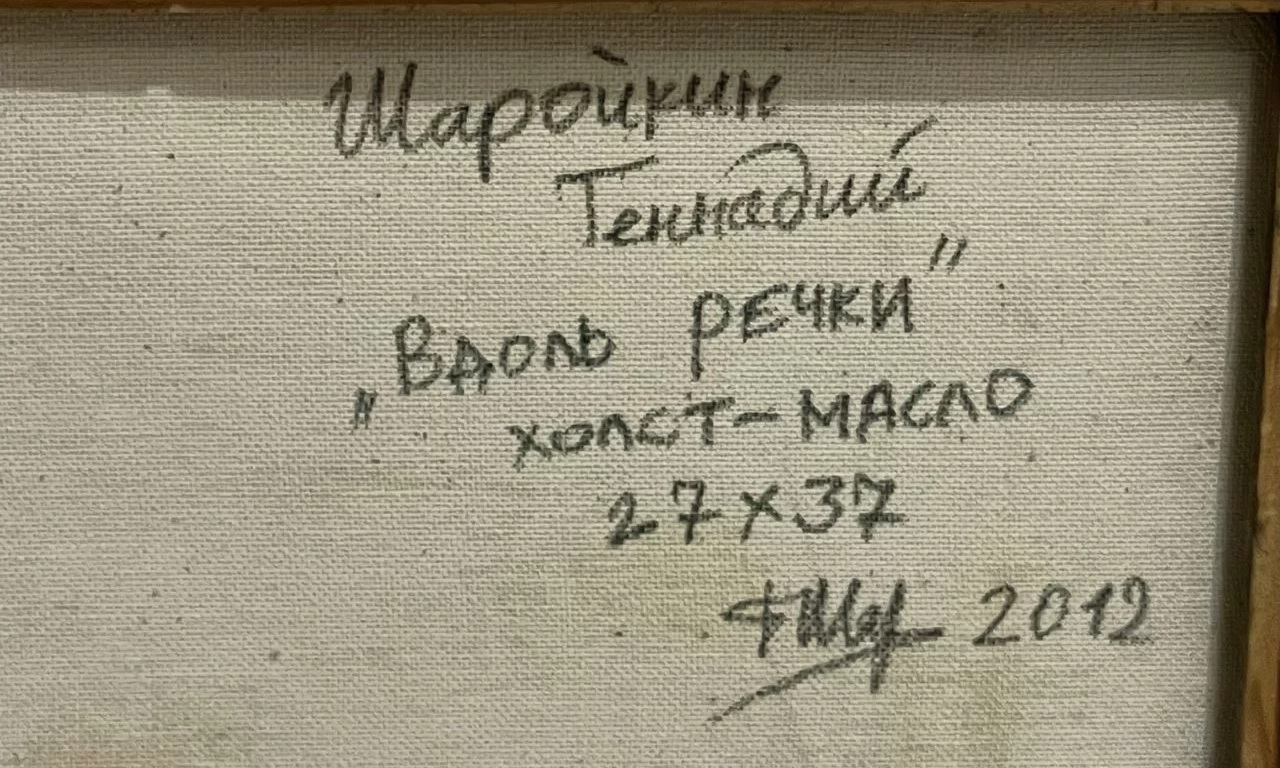 Шаройкин
Геннадий
„Вдоль речки"
холст-масло
27х37
ГШар 2012